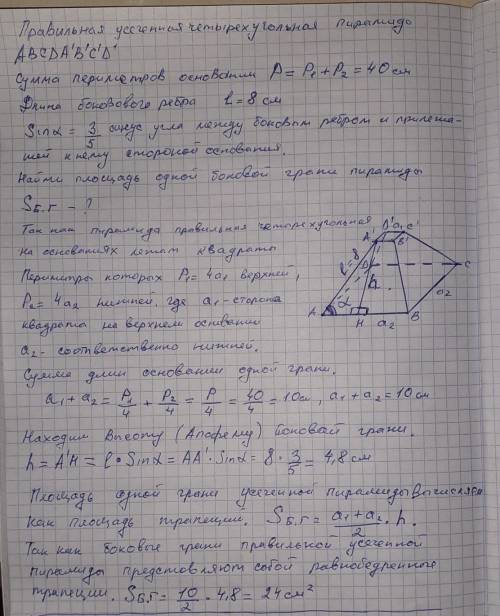 Правильная усеченная четырехугольная пирамида
ABCDA'B'C'D'
Сумма периметров основании P = P₁ + P₂ = 40 см
Длина бокового ребра l = 8 см
Sinα = 3/5 синус угла между боковым ребром и прилежа-
щей к нему стороной основания.
Найти площадь одной боковой грани пирамиды
Sб.г - ?
Так как пирамида правильная четырехугольная
на основаниях лежат квадраты
Периметры которых P₁ = 4a₁ верхней,
P₂ = 4a₂ нижней, где a₁ - сторона
квадрата на верхнем основании
a₂ - соответственно нижней.
A' D' a₁ C'
B'
l = 8
D
C
h
α
a₂
A H a₂ B
Сумма длин основании одной грани.
a₁ + a₂ = P₁/4 + P₂/4 = P/4 = 40/4 = 10 см, a₁ + a₂ = 10 см
Находим высоту (Апофему) боковой грани.
h = A'H = l · Sinα = AA' · Sinα = 8 · 3/5 = 4,8 см
Площадь одной грани усеченной пирамиды вычисляем
как площадь трапеции. Sб.г = (a₁ + a₂)/2 · h.
Так как боковые грани правильной усеченной
пирамиды представляют собой равнобедренные
трапеции. Sб.г = 10/2 · 4,8 = 24 см²